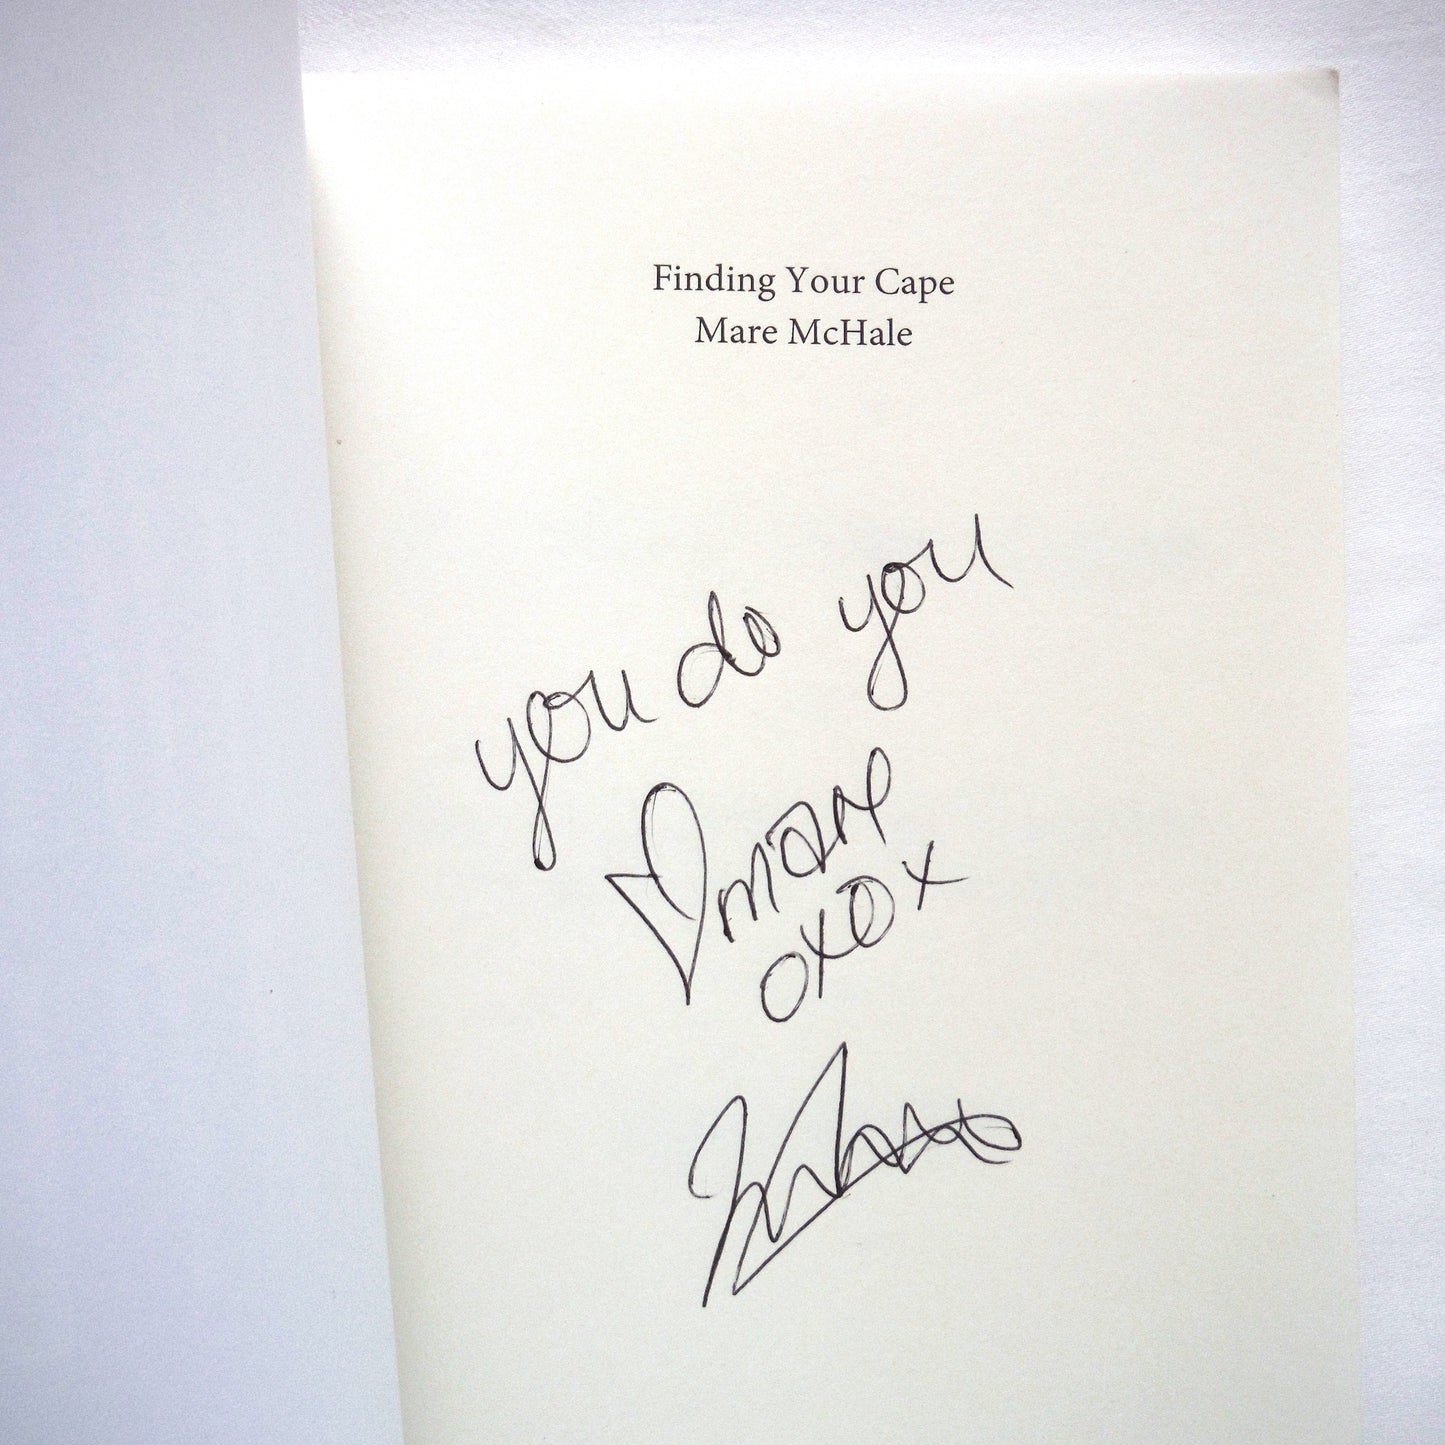 Finding Your Cape
Mare McHale
you do you
mare
oxox